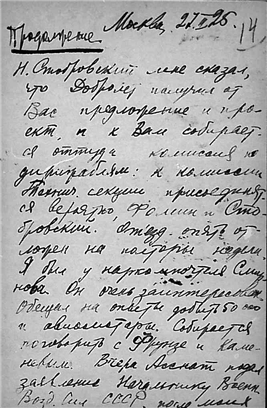 Москва, 27.I.25. 14
Продолжение
Н. Стобровский мне сказал,
что Добролет получил от
Вас предложение и про-
ект, и к Вам собирает-
ся оттуда комиссия по
дирижаблям: к комиссии
Технич. секции присоединят-
ся вероятно, Фомин и Сто-
бровский. Отъезд опять от-
ложен на полторы недели.
Я был у наркомпочтеля Смир-
нова. Он очень заинтересован.
Обещал на опыты добыть
и авиамоторы. Собирается
поговорить с Фрунзе и Каме-
невым. Вчера Асснат подал
заявление Начальнику Военн.
Возд. Сил СССР, после моего